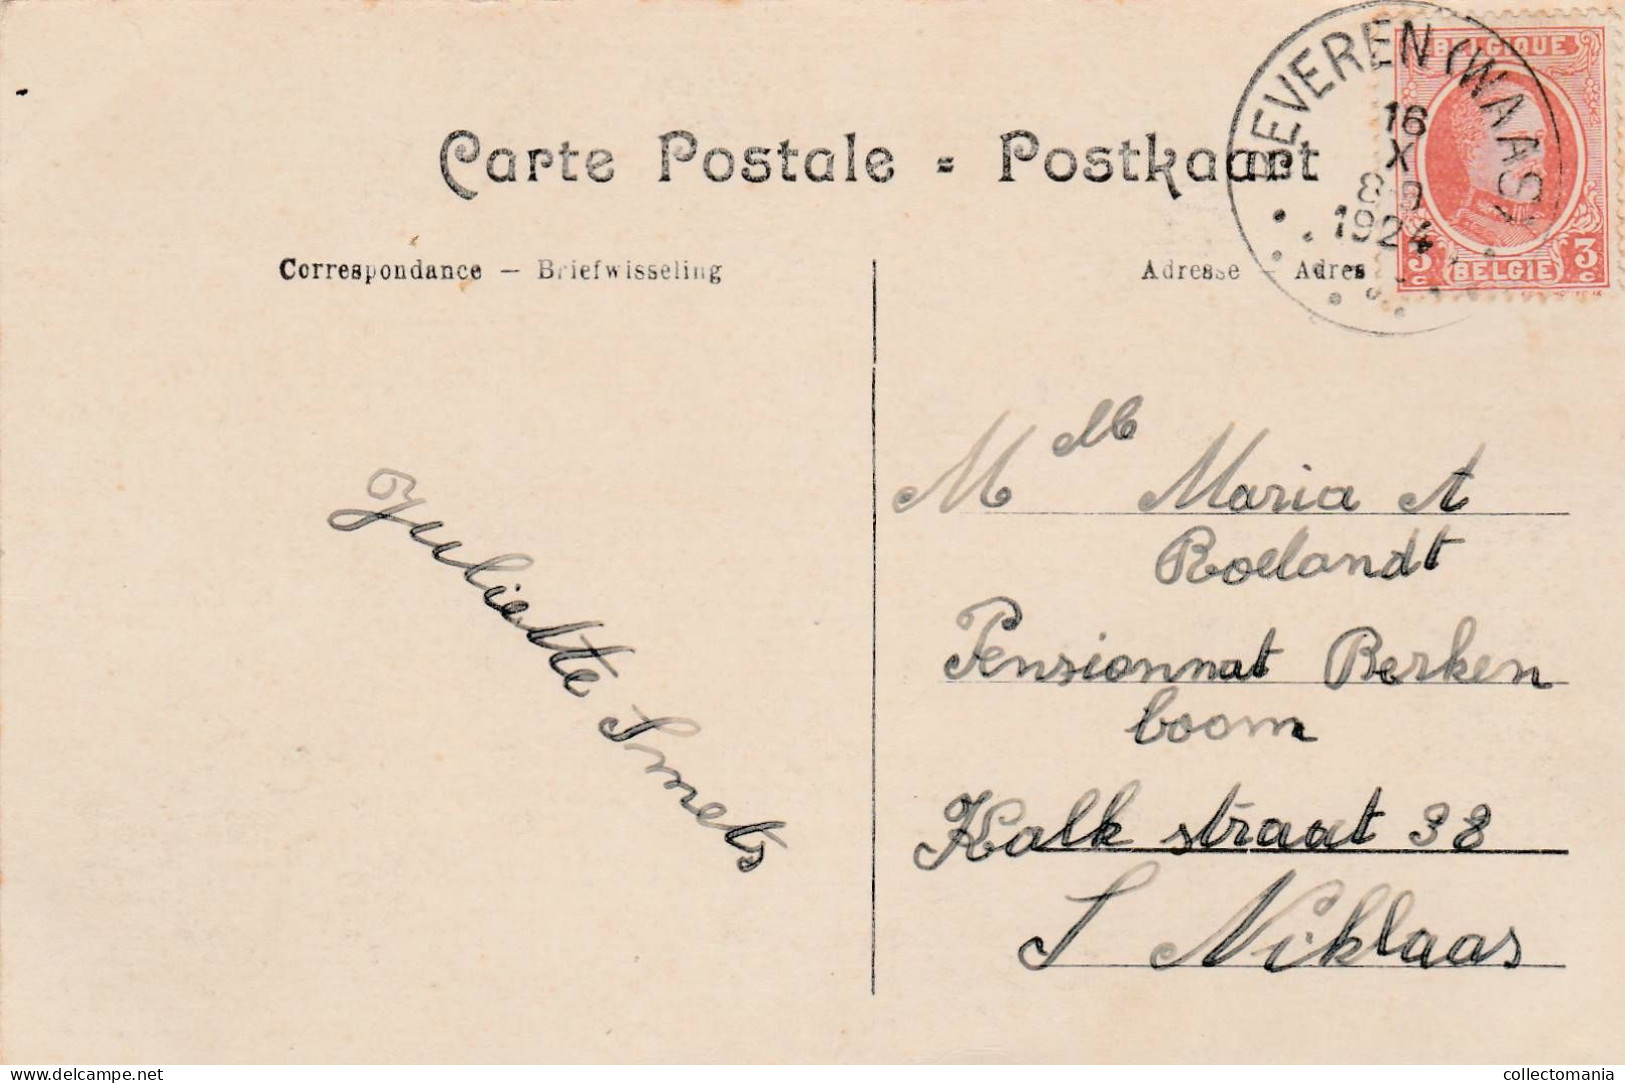 BEVEREN (WAAS)
16
X
1924
BELGIQUE
3c BELGIE 3c
Carte Postale = Postkaart
Correspondance — Briefwisseling
Adresse — Adres
Juliette Smets
Mlle Maria A
Roelandt
Pensionnat Berken
boom
Kalk straat 38
S Niklaas
www.delcampe.net
collectomania